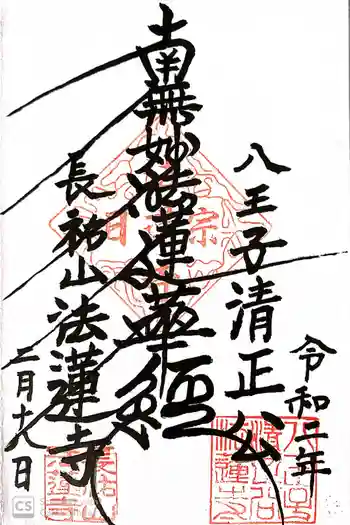 八王子清正公
令和二年
南無妙法蓮華経
長祐山法蓮寺
二月十八日
CS